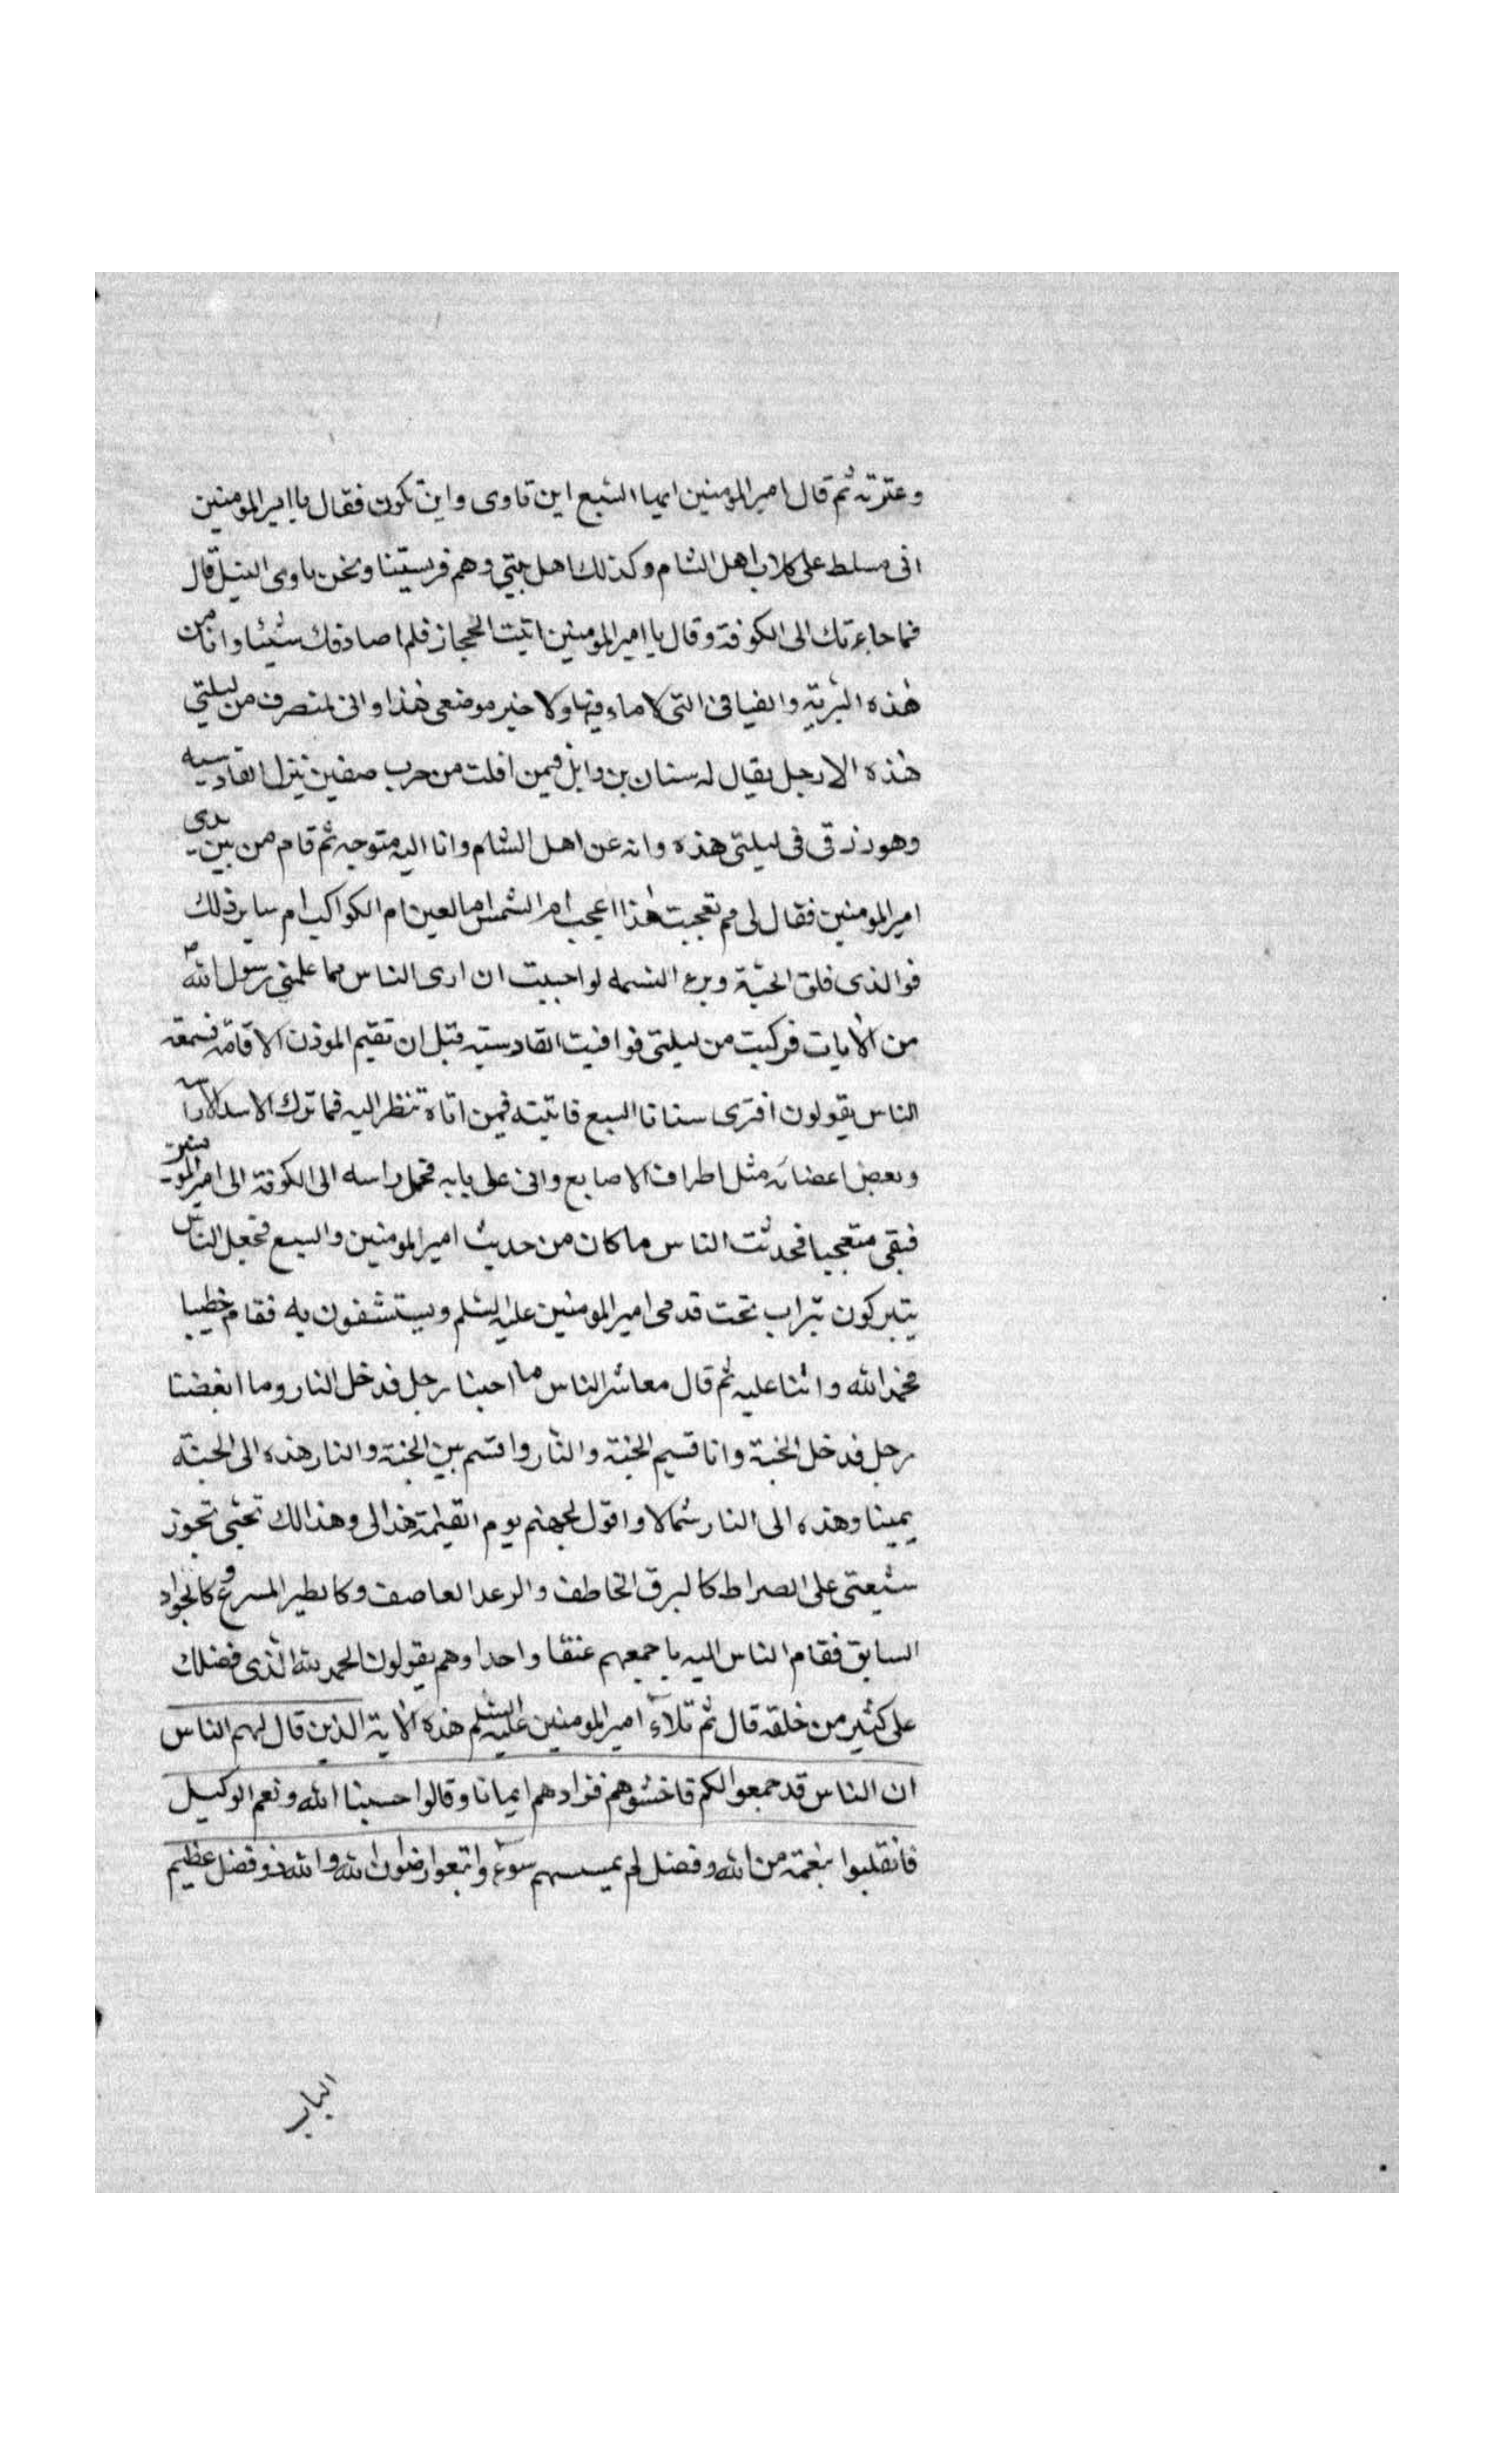 وعترته ثم قال امير المومنين ايها السبع اين تاوى واين تكون فقال يا امير المومنين
انى مسلط على كلاب اهل الشام وكذلك اهل بيتي وهم فريستنا ونحن ناوى النيل قال
فما جاء بك الى الكوفة وقال يا امير المومنين اتيت الحجاز فلم اصادفك شيئا وانا من
هذه البرية والفيافى التى لا ماء فيها ولا خير موضعى هذا وانى لمنصرف من ليلتي
هذه الا رجل يقال له سنان بن وابل فيمن افلت من حرب صفين ينزل القادسيه
وهو رزقى فى ليلتى هذه وانه عن اهل الشام وانا اليه متوجه ثم قام من بين يدى
امير المومنين فقال لى مم تعجبت هذا اعجب ام الشمس ام العين ام الكواكب ام ساير ذلك
فوالذى فلق الحبة وبرء النسمه لو احببت ان ارى الناس مما علمنى رسول الله ص
من الايات فركبت من ليلتى فوافيت القادسيه قبل ان تقيم الموذن الاقامة فسمعت
الناس يقولون افترى سنانا السبع فاتيته فيمن اتاه تنظر اليه فما ترك الاسد الا راسه
وبعض اعضائه مثل اطراف الاصابع وانى على بابه فحمل راسه الى الكوفة الى امير المومنين
فبقى متعجبا فحدثت الناس ما كان من حديث امير المومنين والسبع فجعل الناس
يتبركون بتراب تحت قدمى امير المومنين عليه السلم ويستشفون به فقام خطيبا
فحمد الله واثنا عليه ثم قال معاشر الناس ما احبنا رجل فدخل النار وما ابغضنا
رجل فدخل الجنة وانا قسيم الجنة والنار واقسم بين الجنة والنار هذه الى الجنة
يمينا وهذه الى النار شمالا واقول لجهنم يوم القيمة هذا لى وهذا لك حتى تجوز
شيعتى على الصراط كالبرق الخاطف والرعد العاصف وكالطير المسرع وكالجواد
السابق فقام الناس اليه باجمعهم عنقا واحدا وهم يقولون الحمد لله الذى فضلك
على كثير من خلقه قال ثم تلاء امير المومنين عليه السلم هذه الاية الذين قال لهم الناس
ان الناس قد جمعوا لكم فاخشوهم فزادهم ايمانا وقالوا حسبنا الله ونعم الوكيل
فانقلبوا بنعمة من الله وفضل لم يمسسهم سوء واتبعوا رضوان الله والله ذو فضل عظيم
الباب